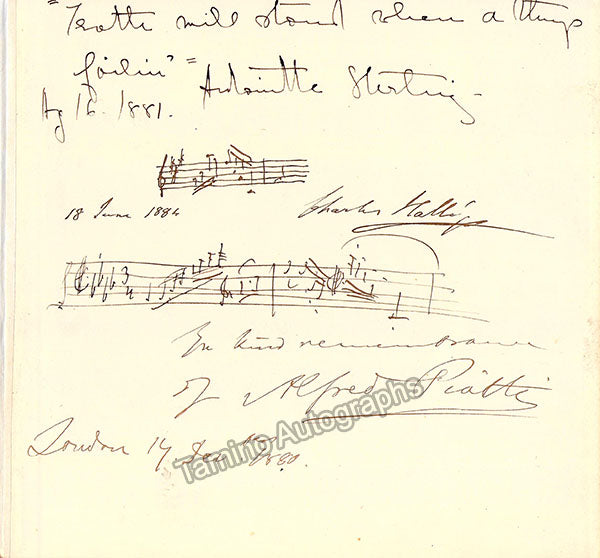 "Truth will stand when a' things
failin'"=
Antoinette Sterling
Ag 16. 1881.
18 June 1884
Charles Hallé
3
4
In kind remembrance
of Alfred Piatti
London 14 Dec 1880.
Tamino Autographs